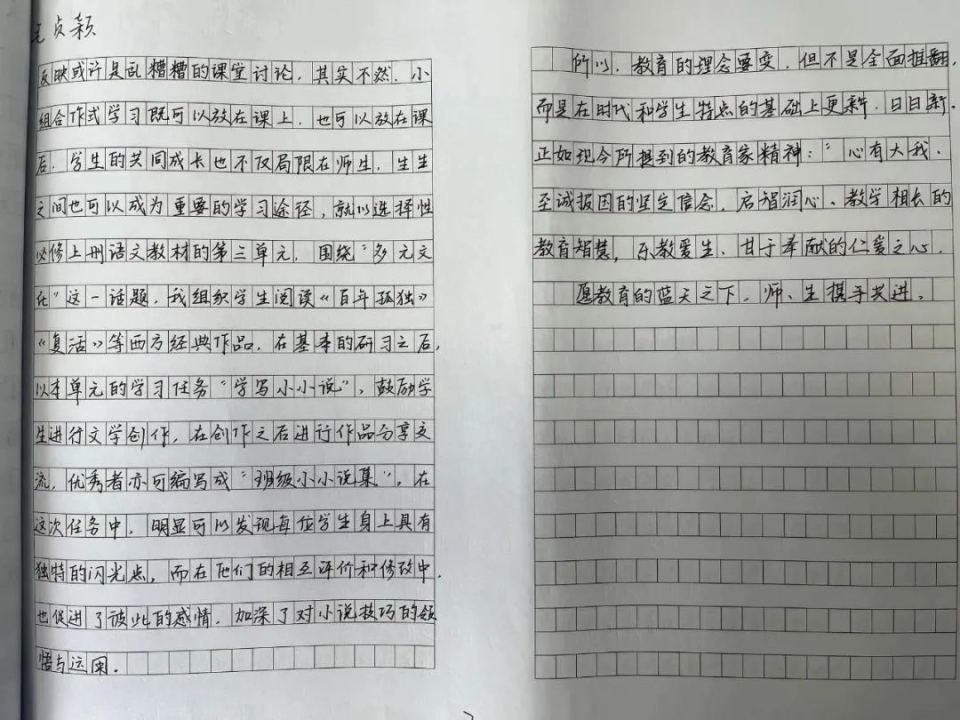 贞颖
反映或许是乱糟糟的课堂讨论，其实不然，小
组合作式学习既可以放在课上，也可以放在课
后，学生的共同成长也不仅局限在师生，生生
之间也可以成为重要的学习途径，就以选择性
必修上册语文教材的第三单元，围绕“多元文
化”这一话题，我组织学生阅读《百年孤独》
《复活》等西方经典作品，在基本的研习之后，
以本单元的学习任务“学写小小说”，鼓励学
生进行文学创作，在创作之后进行作品分享交
流，优秀者亦可编写成“班级小小说集”，在
这次任务中，明显可以发现每位学生身上具有
独特的闪光点，而在他们的相互评价和修改中，
也促进了彼此的感情，加深了对小说技巧的领
悟与运用。
所以，教育的理念要变，但不是全面推翻，
而是在时代和学生特点的基础上更新，日日新。
正如现今所提到的教育家精神：“心有大我、
至诚报国的坚定信念，启智润心、教学相长的
教育智慧，乐教爱生、甘于奉献的仁爱之心。
愿教育的蓝天之下，师、生携手共进。